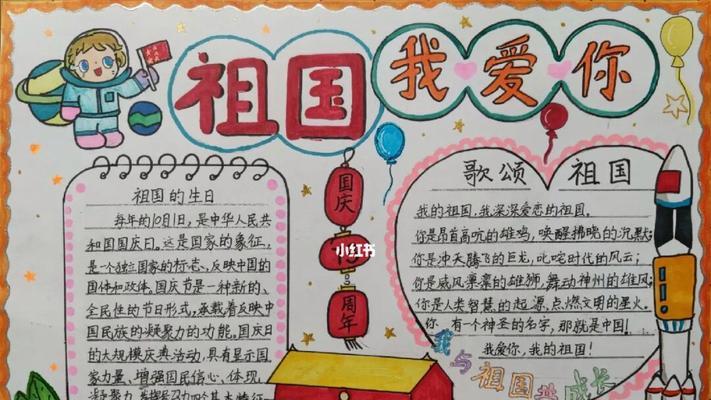 祖国
我爱你
祖国的生日
每年的10月1日,是中华人民共
和国国庆日。这是国家的象征,
是一个独立国家的标志、反映中国的
国体和政体。国庆节是一种新的、
全民性的节日形式,承载着反映中
国民族的凝聚力的功能。国庆日
的大规模庆典活动,具有显示国
家力量、增强国民信心、体现
凝聚力、
国庆
小红书
周年
歌颂 祖国
我的祖国,我深深爱恋的祖国。
你是昂首高吭的雄鸡,唤醒拂晓的沉默;
你是冲天腾飞的巨龙,叱咤时代的风云;
你是威风凛凛的雄狮,舞动神州的雄风;
你是人类智慧的起源,点燃文明的星火。
你 有一个神圣的名字,那就是中国!
我爱你,我的祖国!
我与祖国共成长